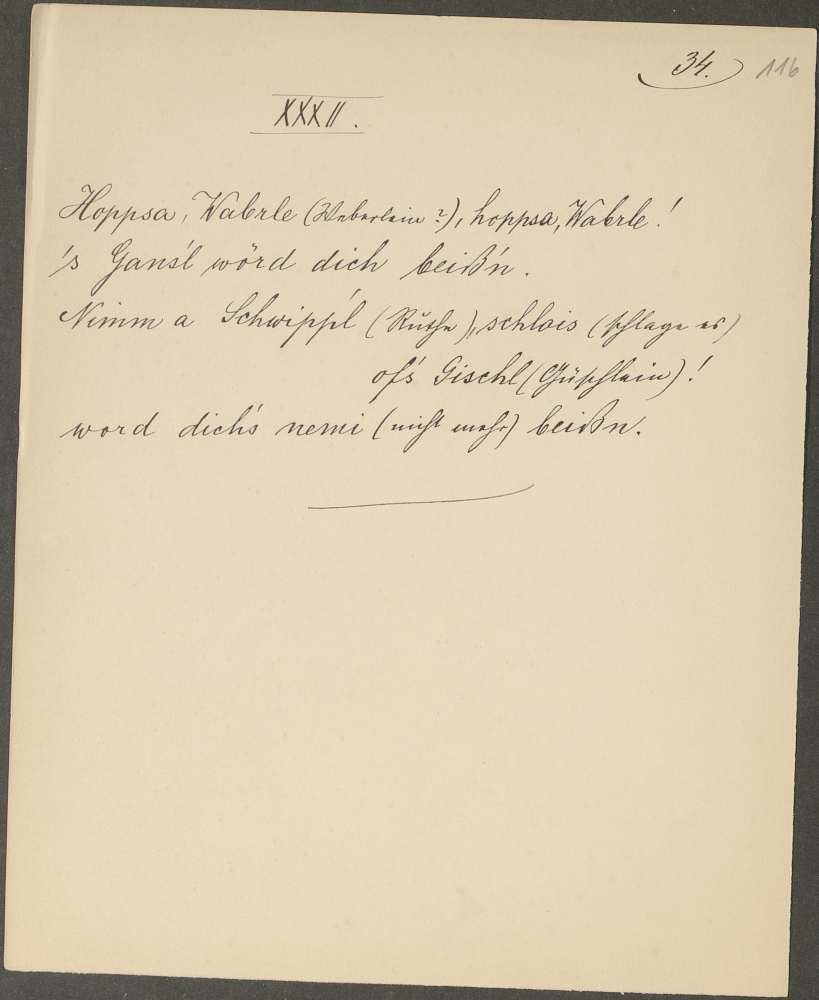 34. 116
XXXII.
Hoppsa, Wabrle (Weberlein?), hoppsa, Wabrle!
's Gans'l wörd dich beiß'n.
Nimm a Schwipp'l (Ruthe), schlois (schlage es)
of's Gischl (Güschlein)!
word dich's nemi (nicht mehr) beißn.